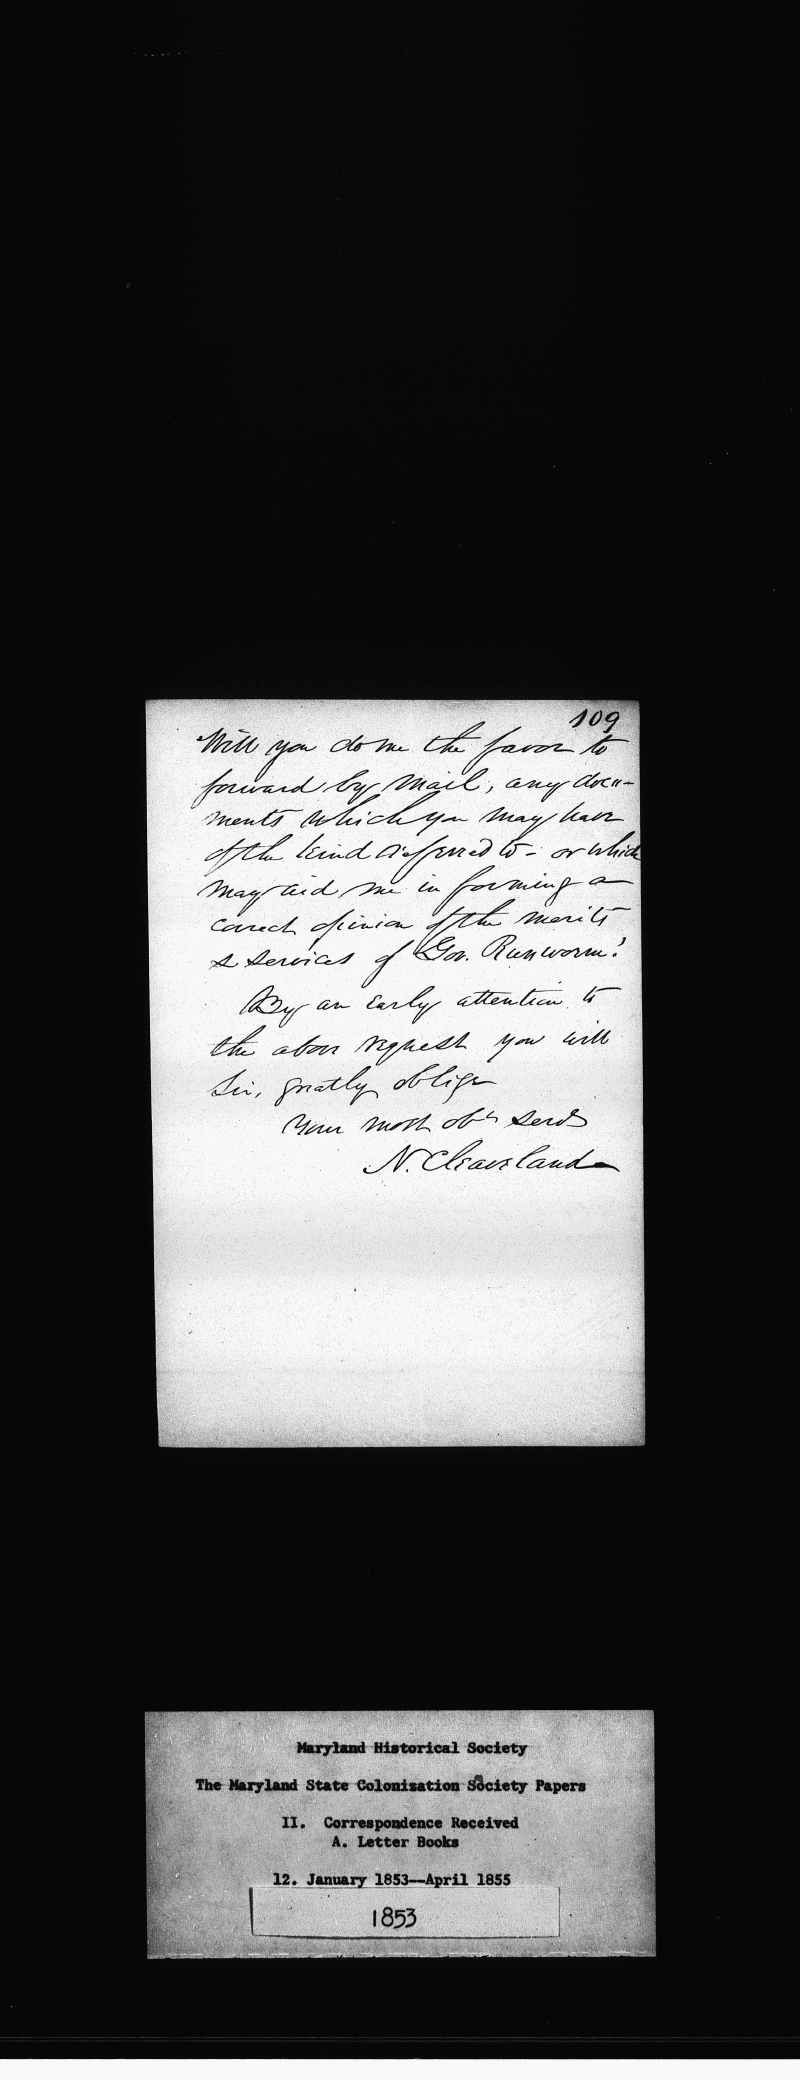 109
Will you do me the favor to
forward by mail, any docu-
ments which you may have
of the kind referred to - or which
may aid me in forming a
correct opinion of the merits
& services of Gov. Russworm?
By an early attention to
the above request you will
Sir, greatly oblige
Your most obt servt
N. Cleaveland
Maryland Historical Society
The Maryland State Colonization Society Papers
II. Correspondence Received
A. Letter Books
12. January 1853--April 1855
1853